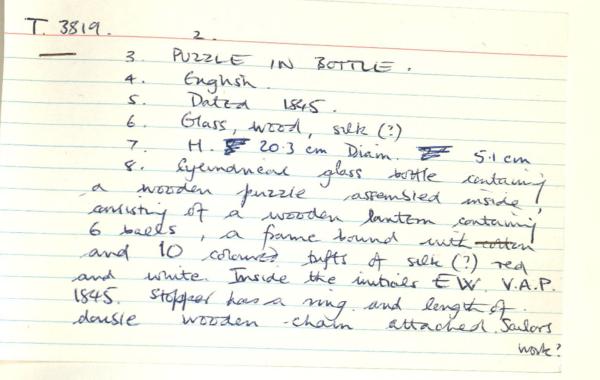 T. 3819.
2.
3. PUZZLE IN BOTTLE.
4. English.
5. Dated 1845.
6. Glass, wood, silk (?)
7. H. 20.3 cm Diam. 5.1 cm
8. Cylindrical glass bottle containing
a wooden puzzle assembled inside,
consisting of a wooden lantern containing
6 balls, a frame bound with cotton
and 10 coloured tufts of silk (?) red
and white. Inside the initials E W. V.A.P.
1845. Stopper has a ring and length of
double wooden chain attached. Sailors
work?